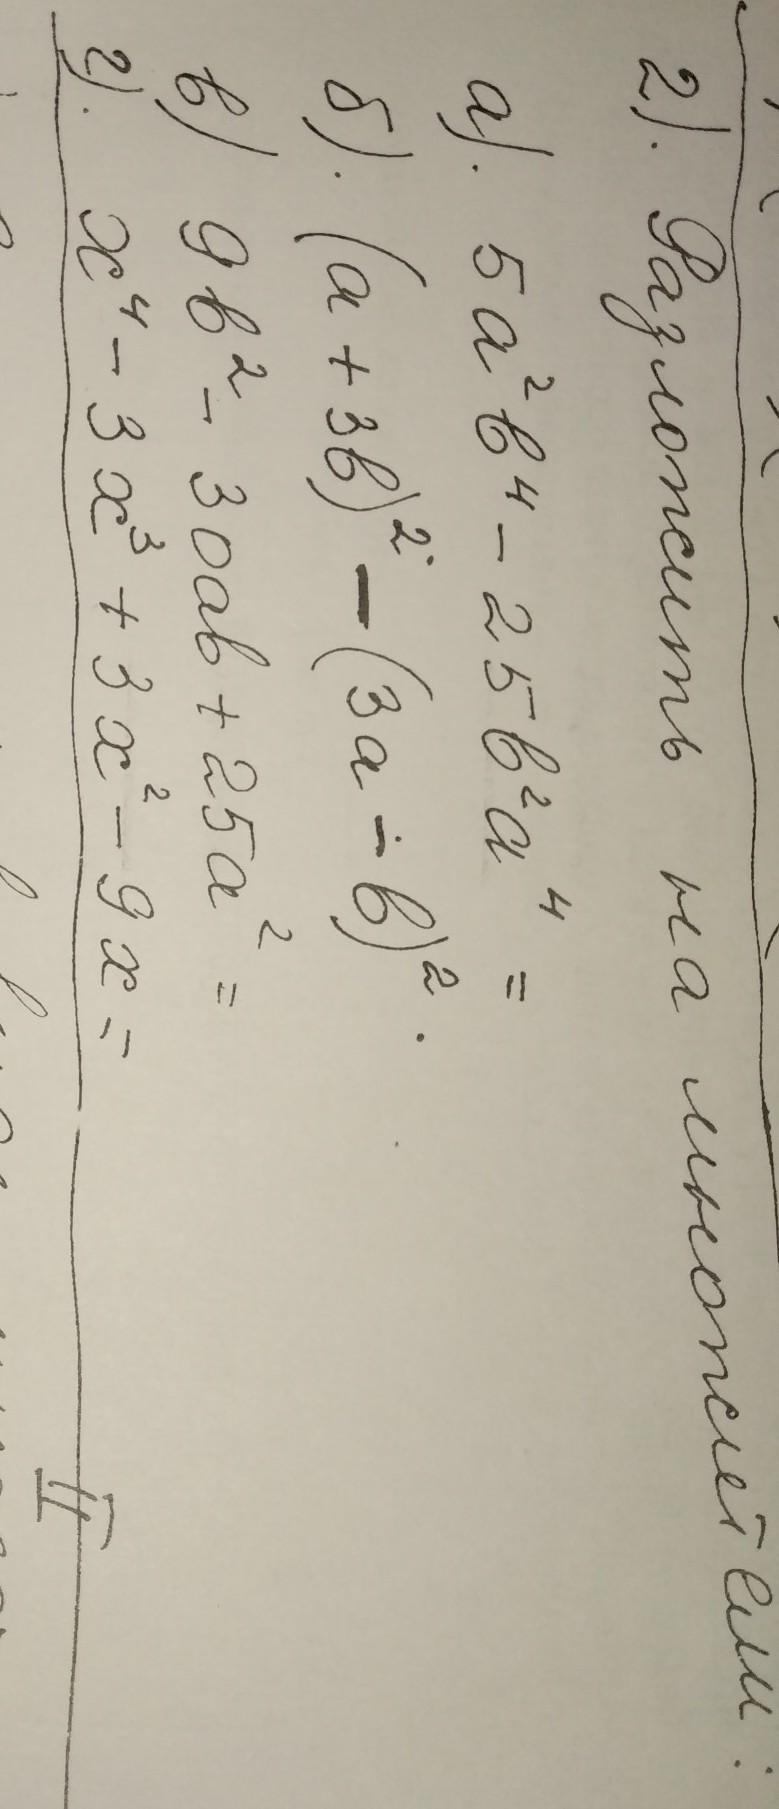 2). Разложить на множетели:
а). 5a²b⁴ - 25b²a⁴ =
б). (a + 3b)² - (3a - b)².
в) 9b² - 30ab + 25a² =
г). x⁴ - 3x³ + 3x² - 9x =
II